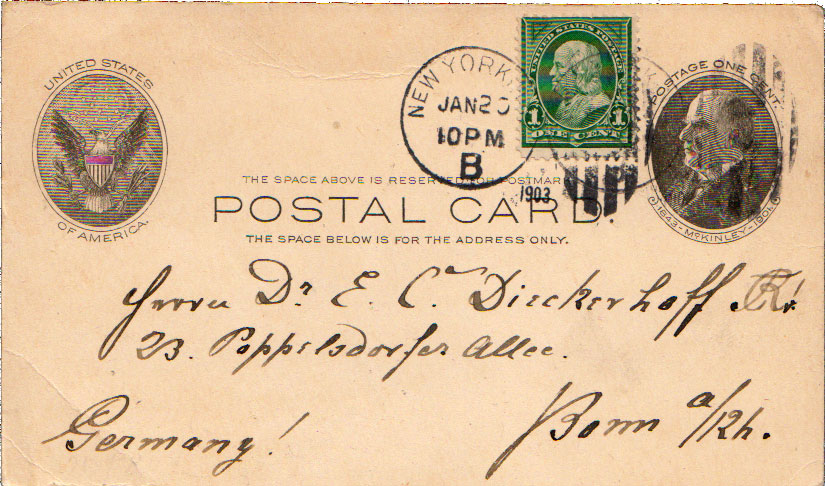 UNITED STATES
OF AMERICA.
NEW YORK
JAN 20
10 PM
B
1903
UNITED STATES POSTAGE
1 1
ONE CENT
POSTAGE ONE CENT.
1843-McKINLEY-1901
THE SPACE ABOVE IS RESERVED FOR POSTMARK
POSTAL CARD.
THE SPACE BELOW IS FOR THE ADDRESS ONLY.
Herrn Dr. E. C. Dieckerhoff
23. Poppelsdorfer Allee.
Bonn a/Rh.
Germany!